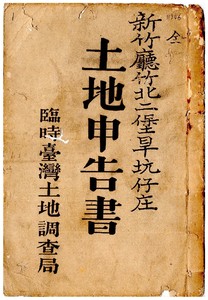 全
新竹廳竹北二堡旱坑仔庄
土地申告書
臨時臺灣土地調查局